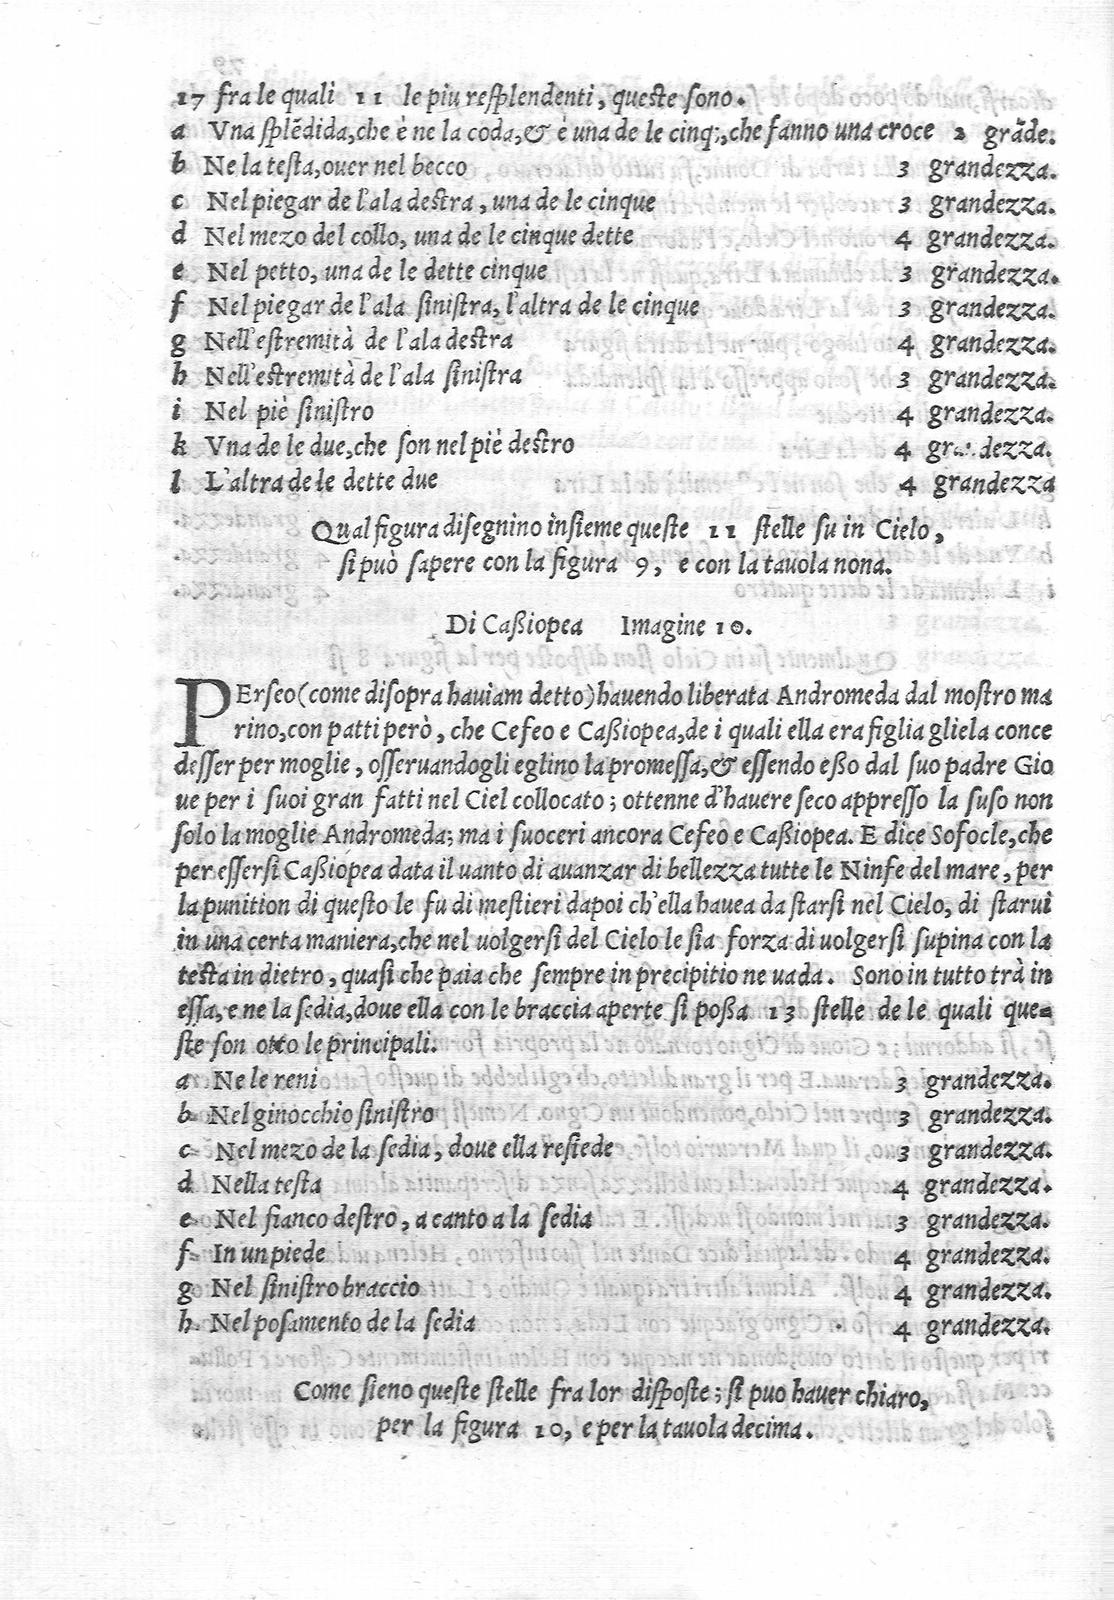 17 fra le quali 11 le piu resplendenti, queste sono.
a Vna splẽdida, che è ne la coda, & è una de le cinq;, che fanno una croce 2 grãde.
b Ne la testa, ouer nel becco 3 grandezza.
c Nel piegar de l'ala destra, una de le cinque 3 grandezza.
d Nel mezo del collo, una de le cinque dette 4 grandezza.
e Nel petto, una de le dette cinque 3 grandezza.
f Nel piegar de l'ala sinistra, l'altra de le cinque 3 grandezza.
g Nell'estremità de l'ala destra 4 grandezza.
h Nell'estremità de l'ala sinistra 3 grandezza.
i Nel piè sinistro 4 grandezza.
k Vna de le due, che son nel piè destro 4 gr dezza.
l L'altra de le dette due 4 grandezza
Qual figura disegnino insieme queste 11 stelle su in Cielo,
si può sapere con la figura 9, e con la tauola nona.
Di Caßiopea Imagine 10.
PErseo (come disopra hauiam detto) hauendo liberata Andromeda dal mostro ma
rino, con patti però, che Cefeo e Caßiopea, de i quali ella era figlia gliela conce
desser per moglie, osseruandogli eglino la promessa, & essendo eßo dal suo padre Gio
ue per i suoi gran fatti nel Ciel collocato; ottenne d'hauere seco appresso la suso non
solo la moglie Andromeda; ma i suoceri ancora Cefeo e Caßiopea. E dice Sofocle, che
per essersi Caßiopea data il uanto di auanzar di bellezza tutte le Ninfe del mare, per
la punition di questo le fu di mestieri dapoi ch'ella hauea da starsi nel Cielo, di starui
in una certa maniera, che nel uolgersi del Cielo le sia forza di uolgersi supina con la
testa in dietro, quasi che paia che sempre in precipitio ne uada. Sono in tutto trà in
essa, e ne la sedia, doue ella con le braccia aperte si posa 13 stelle de le quali que-
ste son otto le principali.
a Ne le reni 3 grandezza.
b Nel ginocchio sinistro 3 grandezza.
c Nel mezo de la sedia, doue ella resiede 3 grandezza.
d Nella testa 4 grandezza.
e Nel fianco destro, a canto a la sedia 3 grandezza.
f In un piede 4 grandezza.
g Nel sinistro braccio 4 grandezza.
h Nel posamento de la sedia 4 grandezza.
Come sieno queste stelle fra lor disposte; si puo hauer chiaro,
per la figura 10, e per la tauola decima.